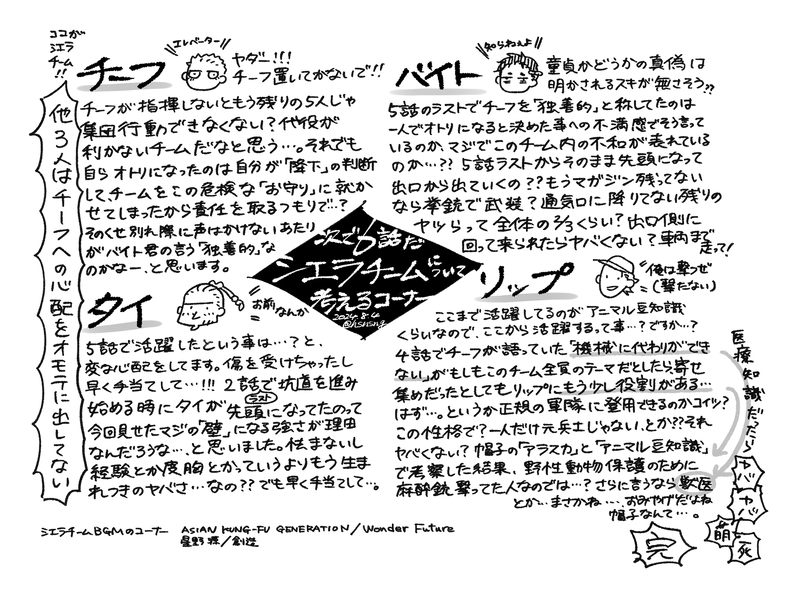 ココが
シエラ
チーム!!
チーフ
エレベーター
ヤダー!!!
チーフ置いてかないで!!
チーフが指揮しないともう残りの5人じゃ
集団行動できなくない?代役が
利かないチームだなと思う…。それでも
自らオトリになったのは自分が「降下」の判断
して、チームをこの危険な「お守り」に就か
せてしまったから責任を取るつもりで…?
そのくせ別れ際に声はかけないあたり
がバイト君の言う「独善的」な
のかなー、と思います。
他3人はチーフへの心配をオモテに出してない
バイト
知らねぇよ
童貞かどうかの真偽は
明かされるスキが無さそう??
5話のラストでチーフを「独善的」と称してたのは
一人でオトリになると決めた事への不満感でそう言って
いるのか、マジでこのチーム内の不和が表れている
のか…?? 5話ラストからそのまま先頭になって
出口から出ていくの??もうマガジン残ってない
なら拳銃で武装?通気口に降りてない残りの
ヤツらって全体の2/3くらい?出口側に
回って来られたらヤバくない?車両まで
走って!
次で6話だ
シエラチームについて
考えるコーナー
2024.8.4
タイ
お前なんか
5話で活躍したという事は…?と、
変な心配をしてます。傷を受けちゃったし
早く手当てして…!!! 2話で坑道を進み
始める時にタイが先頭になってたのって
ラスト
今回見せたマジの「壁」になる強さが理由
なんだろうな…と思いました。怯まないし
経験とか度胸とかっていうよりもう生ま
れつきのヤバさ…なの??でも早く手当てして…。
リップ
俺は撃つぜ
(撃たない)
ここまで活躍してるのがアニマル豆知識
くらいなので、ここから活躍するって事…?ですか…?
4話でチーフが語っていた「機械に代わりができ
ない」がもしもこのチーム全員のテーマだとしたら寄せ
集めだったとしてもリップにもう少し役割がある…
はず…。というか正規の軍隊に登用できるのかコイツ?
この性格で?一人だけ元兵士じゃない、とか??それ
ヤバくない?帽子の「アラスカ」と「アニマル豆知識」
で考察した結果、野性動物保護のために
麻酔銃撃ってた人なのでは…?さらに言うなら獣医
とか…まさかね…。おみやげだよね
帽子なんて…。
医療知識だった
ヤバ
ヤバ
死
完
シエラチームBGMのコーナー ASIAN KUNG-FU GENERATION/Wonder Future
星野源/創造